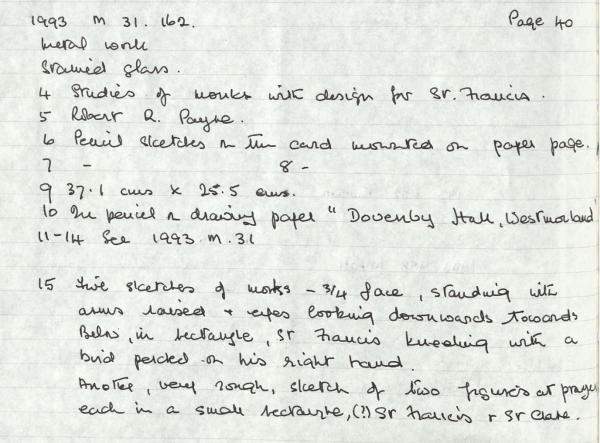 1993 M 31.162. Page 40
Metal work
Stained glass.
4 Studies of monks with design for St. Francis.
5 Robert R. Payne.
6 Pencil sketches on thin card mounted on paper page.
7 - 8 -
9 37.1 cms x 25.5 cms.
10 In pencil on drawing paper " Dovenby Hall, Westmorland
11-14 See 1993.M.31
15 Five sketches of monks - 3/4 face, standing with
arms raised + eyes looking downwards towards
Below, in rectangle, St Francis kneeling with a
bird perched on his right hand.
Another, very rough, sketch of two figures at prayer
each in a small rectangle, (?) St Francis + St Clare.